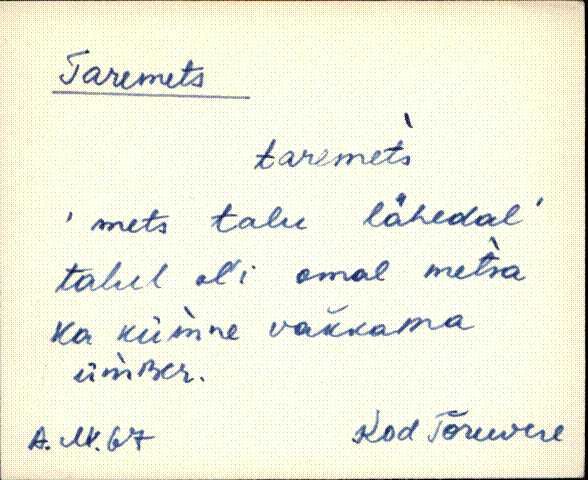 Taremets
taremet̀s
'mets talu lähedal'
talul ol'i omal met̀sa
Ka küm̀ne vak̆kama
üm̀ber.
A. M. 67 Kod Tõruvere